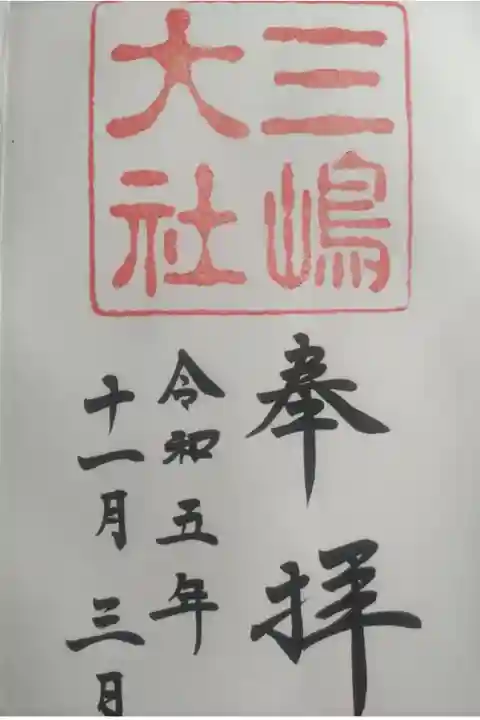 三嶋
大社
奉拝
令和五年
十一月三日